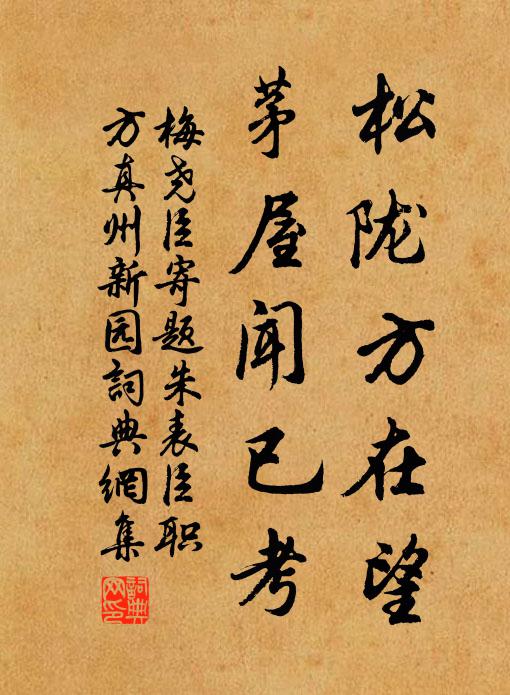 松陇方在望
茅屋闻已考
梅尧臣寄题朱表臣职
方真州新园詞典網集
詞典网印